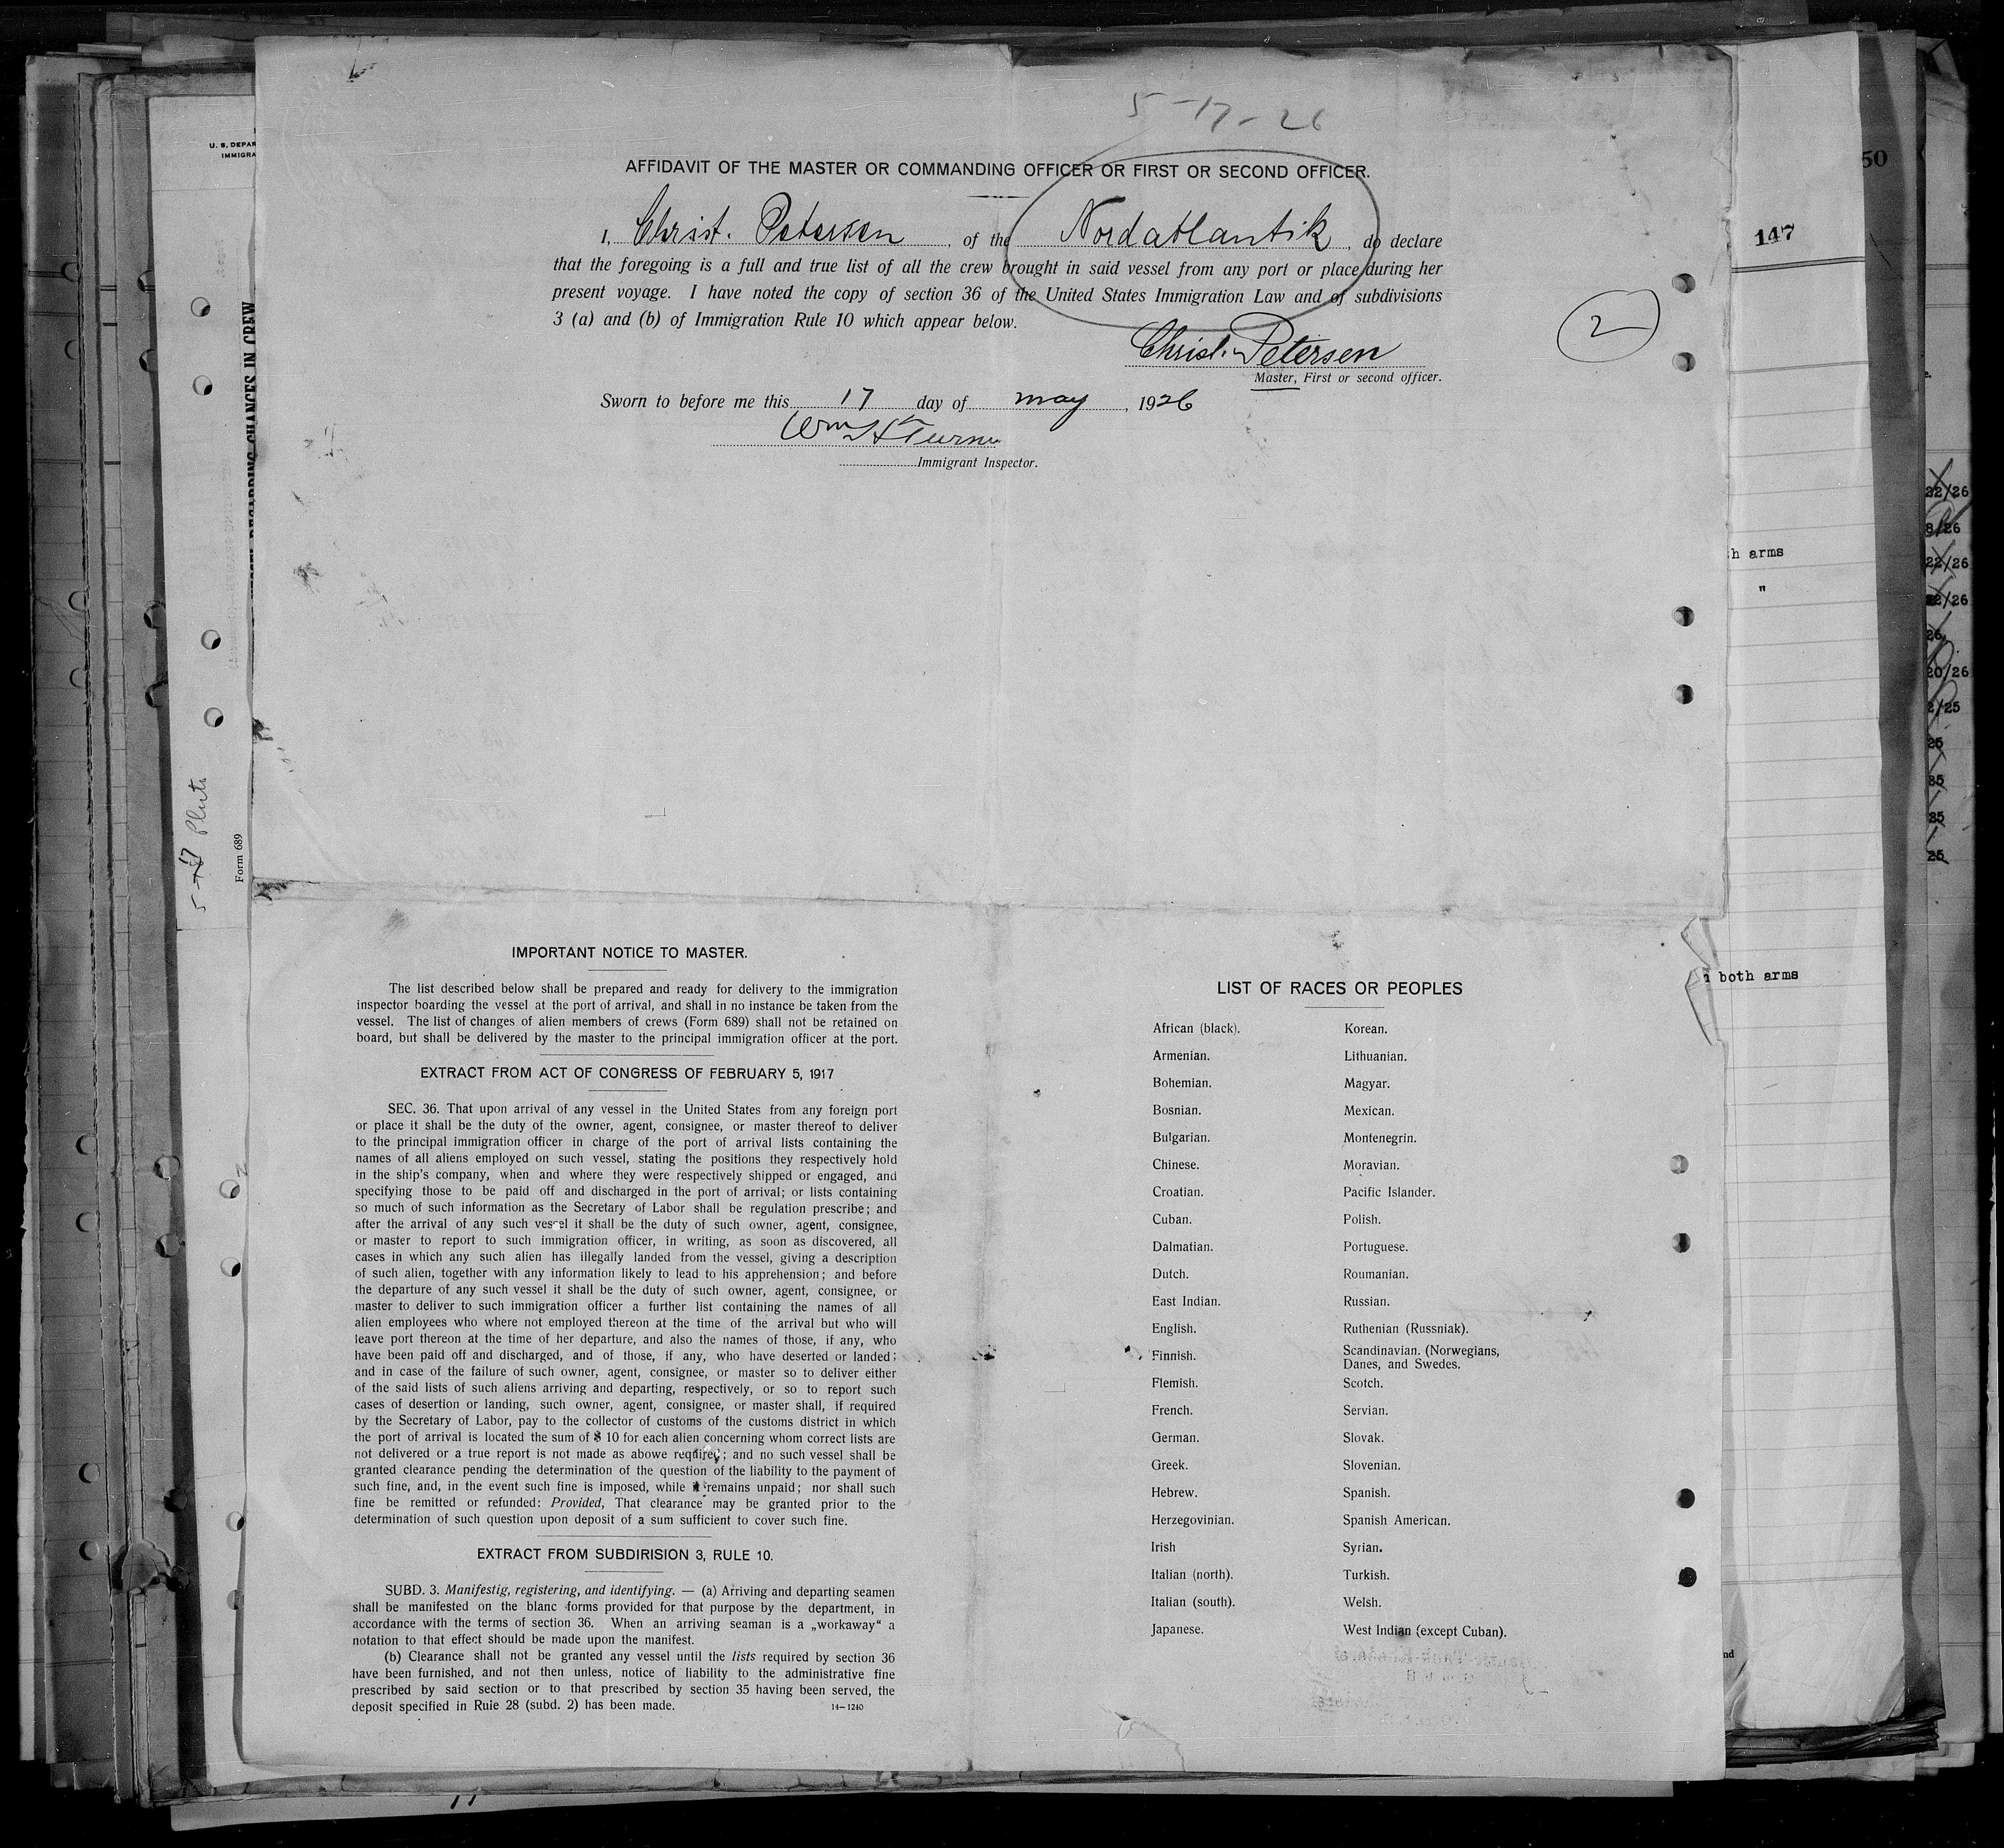 5-17-26
AFFIDAVIT OF THE MASTER OR COMMANDING OFFICER OR FIRST OR SECOND OFFICER.
I, Christ. Petersen, of the Nordatlantik, do declare
that the foregoing is a full and true list of all the crew brought in said vessel from any port or place during her
present voyage. I have noted the copy of section 36 of the United States Immigration Law and of subdivisions
3 (a) and (b) of Immigration Rule 10 which appear below.
Christ. Petersen
Master, First or second officer.
Sworn to before me this 17 day of may, 1926
Wm H Turner
Immigrant Inspector.
2
U. S. DEPAR
IMMIGRA
REGARDING CHANGES IN CREW
Form 689
5-17
50
147
h arms
"
n both arms
nd
22/26
8/26
22/26
22/26
26
20/26
2/25
25
25
25
25
IMPORTANT NOTICE TO MASTER.
The list described below shall be prepared and ready for delivery to the immigration
inspector boarding the vessel at the port of arrival, and shall in no instance be taken from the
vessel. The list of changes of alien members of crews (Form 689) shall not be retained on
board, but shall be delivered by the master to the principal immigration officer at the port.
EXTRACT FROM ACT OF CONGRESS OF FEBRUARY 5, 1917
SEC. 36. That upon arrival of any vessel in the United States from any foreign port
or place it shall be the duty of the owner, agent, consignee, or master thereof to deliver
to the principal immigration officer in charge of the port of arrival lists containing the
names of all aliens employed on such vessel, stating the positions they respectively hold
in the ship's company, when and where they were respectively shipped or engaged, and
specifying those to be paid off and discharged in the port of arrival; or lists containing
so much of such information as the Secretary of Labor shall be regulation prescribe; and
after the arrival of any such vessel it shall be the duty of such owner, agent, consignee,
or master to report to such immigration officer, in writing, as soon as discovered, all
cases in which any such alien has illegally landed from the vessel, giving a description
of such alien, together with any information likely to lead to his apprehension; and before
the departure of any such vessel it shall be the duty of such owner, agent, consignee, or
master to deliver to such immigration officer a further list containing the names of all
alien employees who where not employed thereon at the time of the arrival but who will
leave port thereon at the time of her departure, and also the names of those, if any, who
have been paid off and discharged, and of those, if any, who have deserted or landed;
and in case of the failure of such owner, agent, consignee, or master so to deliver either
of the said lists of such aliens arriving and departing, respectively, or so to report such
cases of desertion or landing, such owner, agent, consignee, or master shall, if required
by the Secretary of Labor, pay to the collector of customs of the customs district in which
the port of arrival is located the sum of $ 10 for each alien concerning whom correct lists are
not delivered or a true report is not made as abowe required; and no such vessel shall be
granted clearance pending the determination of the question of the liability to the payment of
such fine, and, in the event such fine is imposed, while it remains unpaid; nor shall such
fine be remitted or refunded: Provided, That clearance may be granted prior to the
determination of such question upon deposit of a sum sufficient to cover such fine.
EXTRACT FROM SUBDIRISION 3, RULE 10.
SUBD. 3. Manifestig, registering, and identifying. — (a) Arriving and departing seamen
shall be manifested on the blanc forms provided for that purpose by the department, in
accordance with the terms of section 36. When an arriving seaman is a „workaway“ a
notation to that effect should be made upon the manifest.
(b) Clearance shall not be granted any vessel until the lists required by section 36
have been furnished, and not then unless, notice of liability to the administrative fine
prescribed by said section or to that prescribed by section 35 having been served, the
deposit specified in Rule 28 (subd. 2) has been made.
14—1240
LIST OF RACES OR PEOPLES
African (black). Korean.
Armenian. Lithuanian.
Bohemian. Magyar.
Bosnian. Mexican.
Bulgarian. Montenegrin.
Chinese. Moravian.
Croatian. Pacific Islander.
Cuban. Polish.
Dalmatian. Portuguese.
Dutch. Roumanian.
East Indian. Russian.
English. Ruthenian (Russniak).
Finnish. Scandinavian. (Norwegians,
Danes, and Swedes.
Flemish. Scotch.
French. Servian.
German. Slovak.
Greek. Slovenian.
Hebrew. Spanish.
Herzegovinian. Spanish American.
Irish Syrian.
Italian (north). Turkish.
Italian (south). Welsh.
Japanese. West Indian (except Cuban).